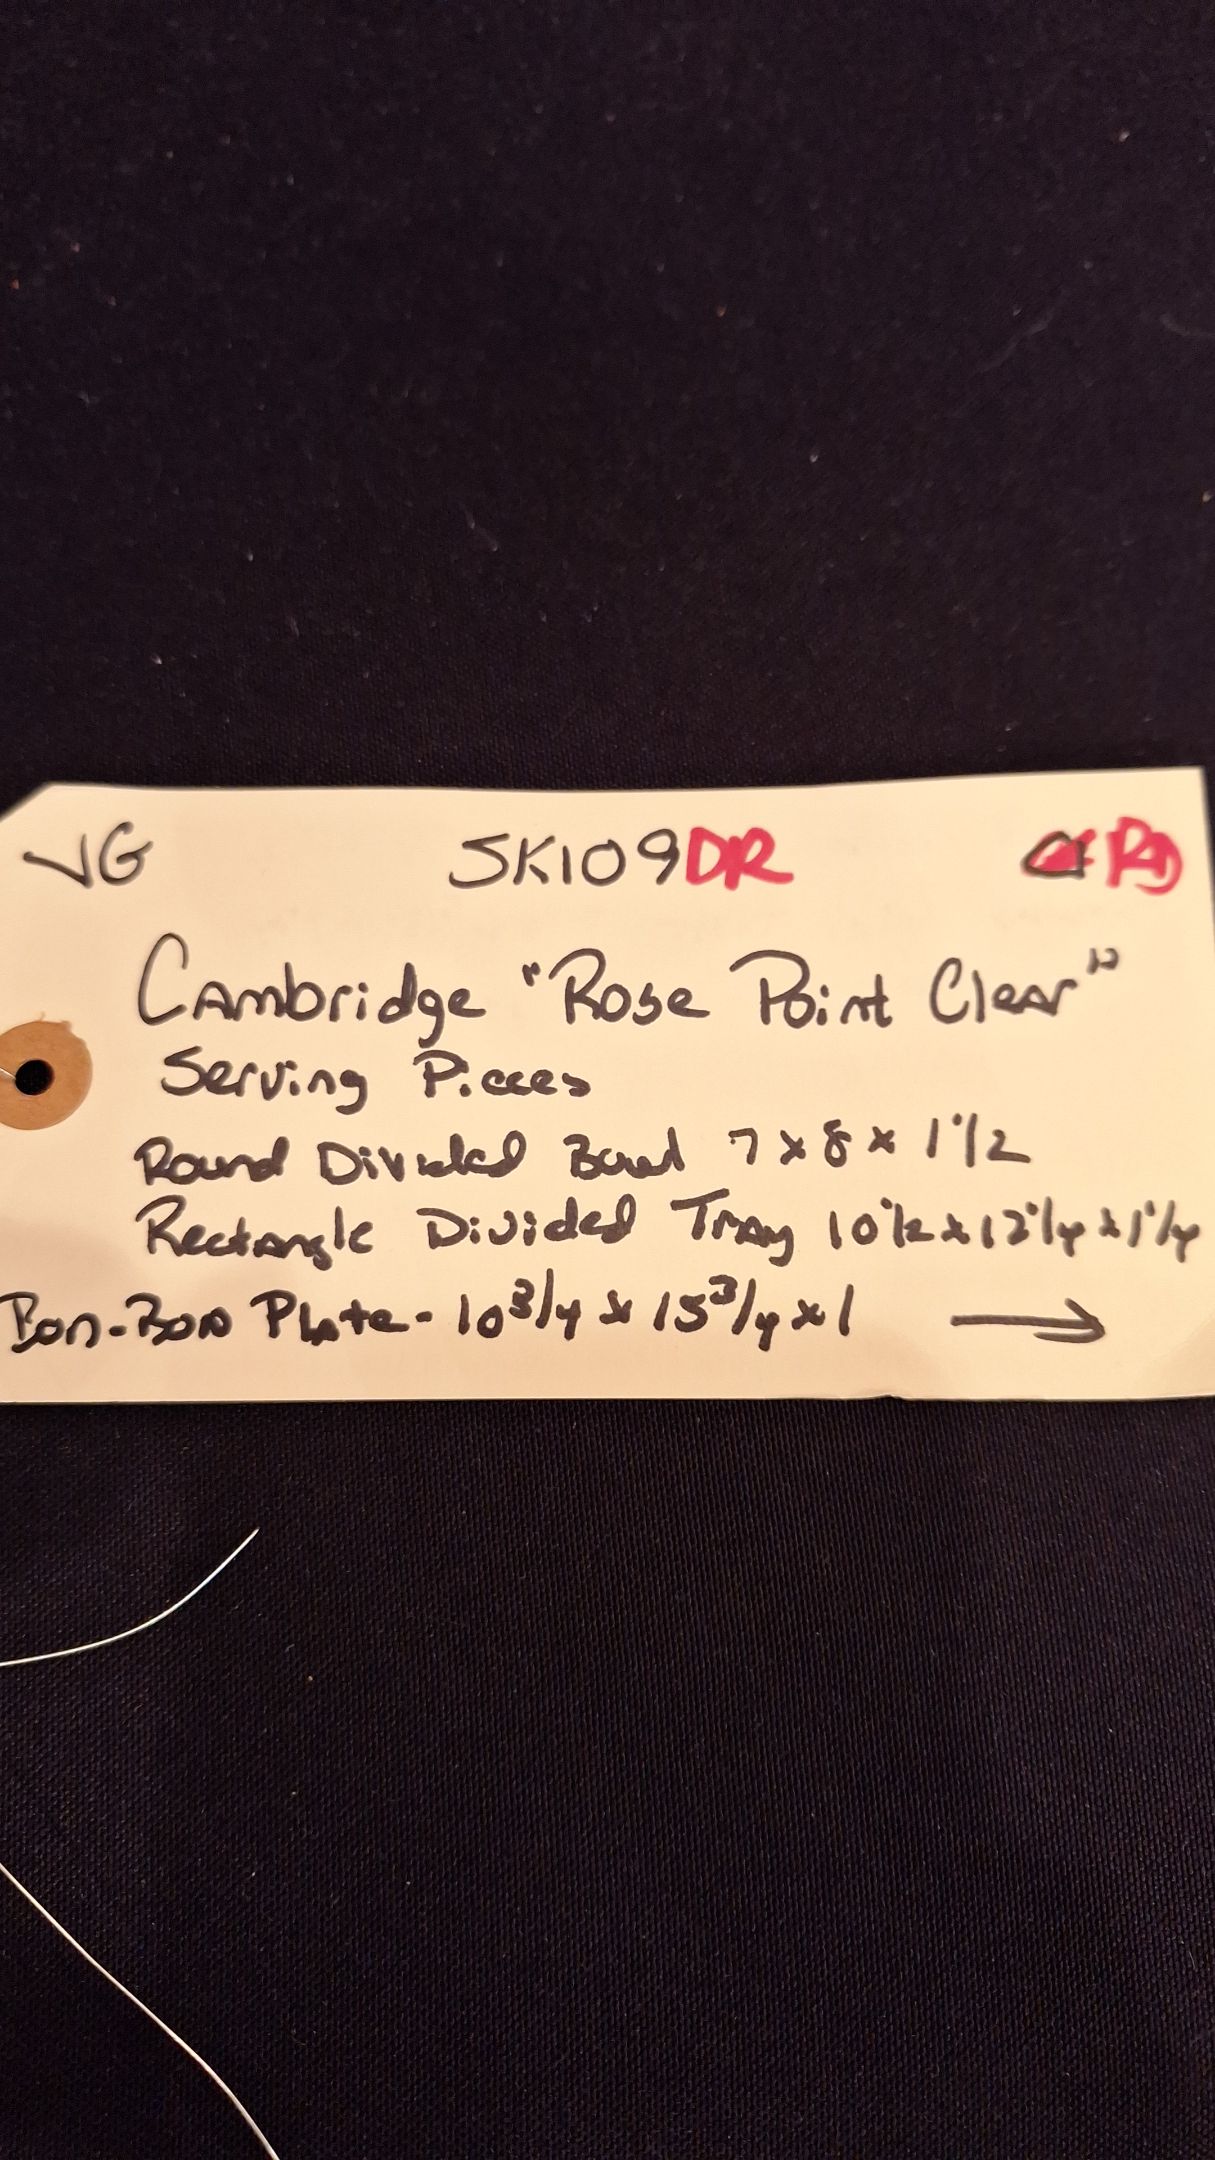 VG SK109DR
Cambridge "Rose Point Clear"
Serving Pieces
Round Divided Bowl 7 x 8 x 1 1/2
Rectangle Divided Tray 10 1/2 x 12 1/4 x 1 1/4
Bon-Bon Plate - 10 3/4 x 15 3/4 x 1 →